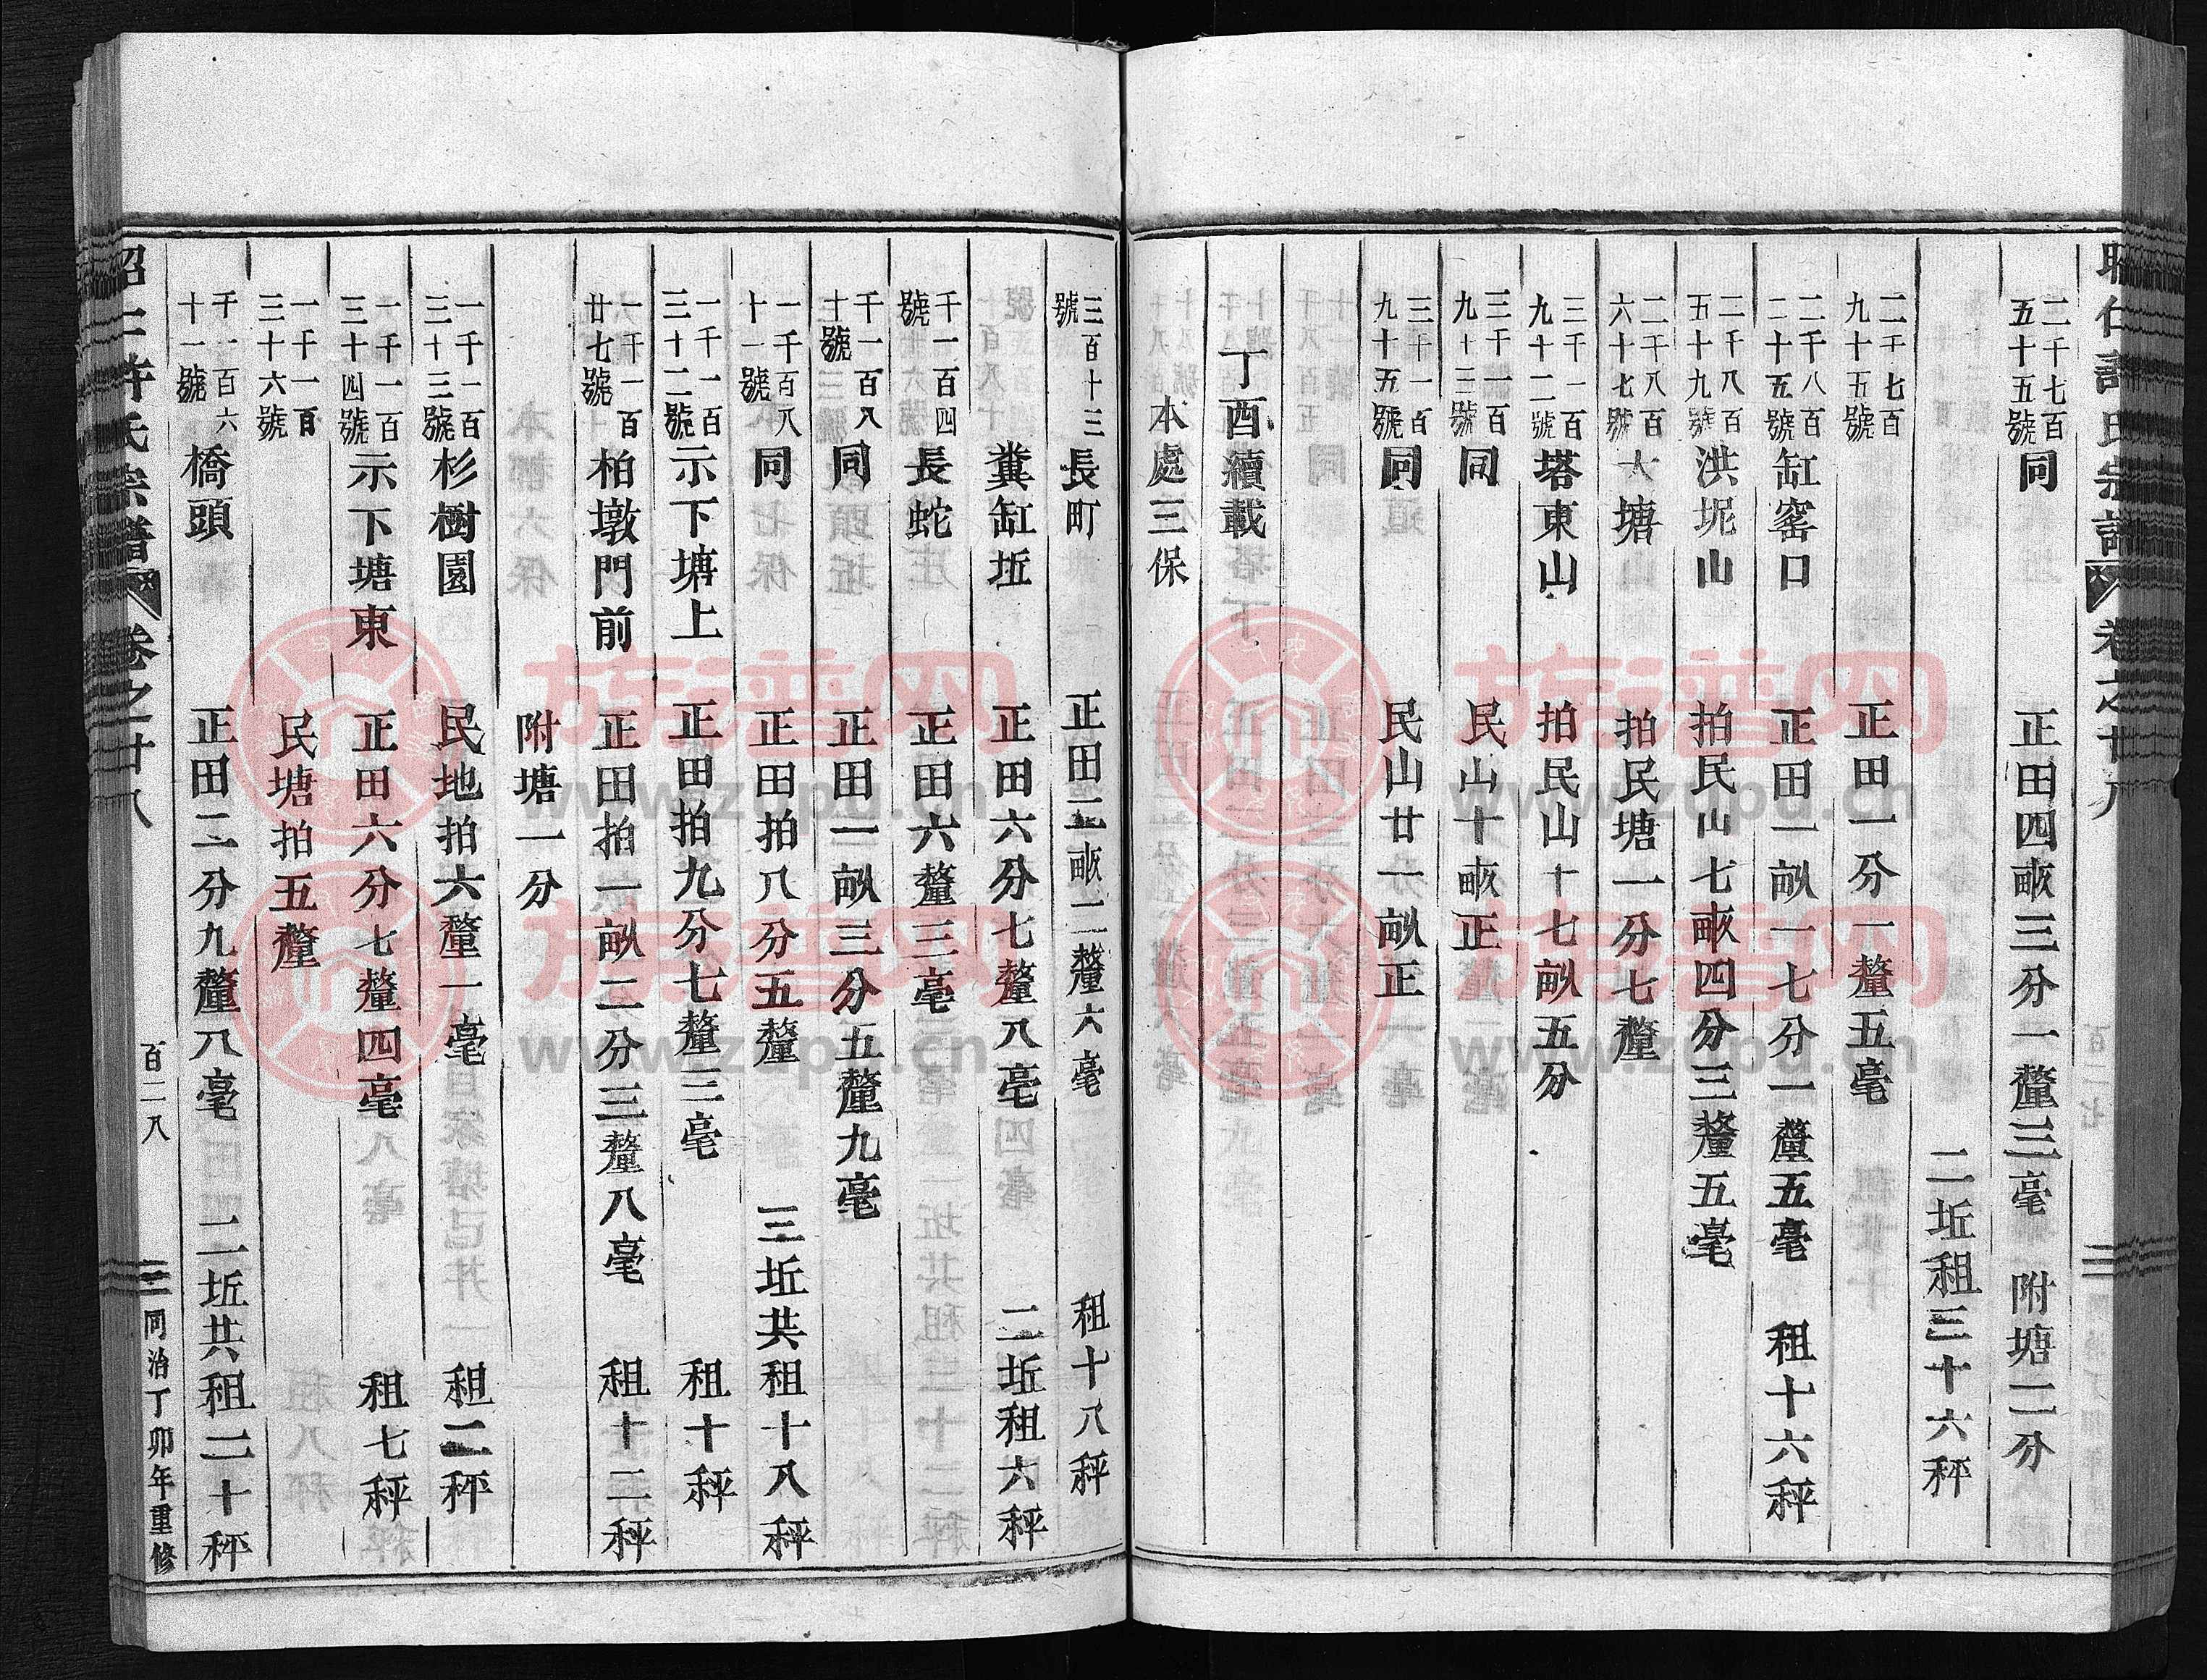 二千七百五十五號同 正田四畝三分一釐三毫 附塘二分
二坵租三十六秤
二千七百九十五號 正田一分一釐五毫
二千八百二十五號缸窰口 正田一畝一七分一釐五毫 租十六秤
二千八百五十九號洪坭山 拍民山七畝四分三釐五毫
二千八百六十七號大塘 拍民塘一分七釐
三千一百九十二號塔東山 拍民山十七畝五分
三千一百九十三號同 民山十畝正
三千一百九十五號同 民山廿一畝正
丁酉續載
本處三保
三百十三號長町 正田五畝二釐六毫 租十八秤
糞缸坵 正田六分七釐八毫 二坵租六秤
千一百四號長蛇 正田六釐三毫
千一百八十號同 正田一畝三分五釐九毫
一千百八十一號同 正田拍八分五釐 三坵共租十八秤
一千一百三十二號示下塘上 正田拍九分七釐三毫 租十秤
一千一百廿七號柏墩門前 正田拍一畝二分三釐八毫 租十二秤
附塘一分
一千一百三十三號杉樹園 民地拍六釐一毫 租二秤
一千一百三十四號示下塘東 正田六分七釐四毫 租七秤
一千一百三十六號 民塘拍五釐
千一百六十一號橋頭 正田二分九釐八毫 二坵共租二十秤
許氏宗譜 卷之廿八 百二八 同治丁卯年重修
www.zupu.cn
族譜网
www.zupu.cn
族譜网
www.zupu.cn
族譜网
www.zupu.cn
族譜网